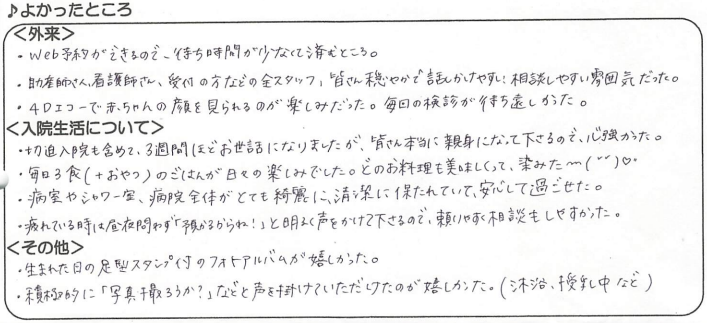 ♪よかったところ
＜外来＞
・Web予約ができるので、待ち時間が少なくて済むところ。
・助産師さん、看護師さん、受付の方などの全スタッフ、皆さん穏やかで話しかけやすい相談しやすい雰囲気だった。
・4Dエコーで赤ちゃんの顔を見られるのが楽しみだった。毎回の検診が待ち遠しかった。
＜入院生活について＞
・切迫入院も含めて、3週間ほどお世話になりましたが、皆さん本当に親身になって下さるので、心強かった。
・毎日3食(+おやつ)のごはんが日々の楽しみでした。どのお料理も美味しくって、染みた〜(˘˘)♡
・病室やシャワー室、病院全体がとても綺麗に、清潔に保たれていて、安心して過ごせた。
・疲れている時は昼夜問わず「預かるからね!」と明るく声をかけて下さるので、頼りやすく相談もしやすかった。
＜その他＞
・生まれた日の足型スタンプ付のフォトアルバムが嬉しかった。
・積極的に「写真撮ろうか?」などと声を掛けていただけたのが嬉しかった。(沐浴、授乳中など)